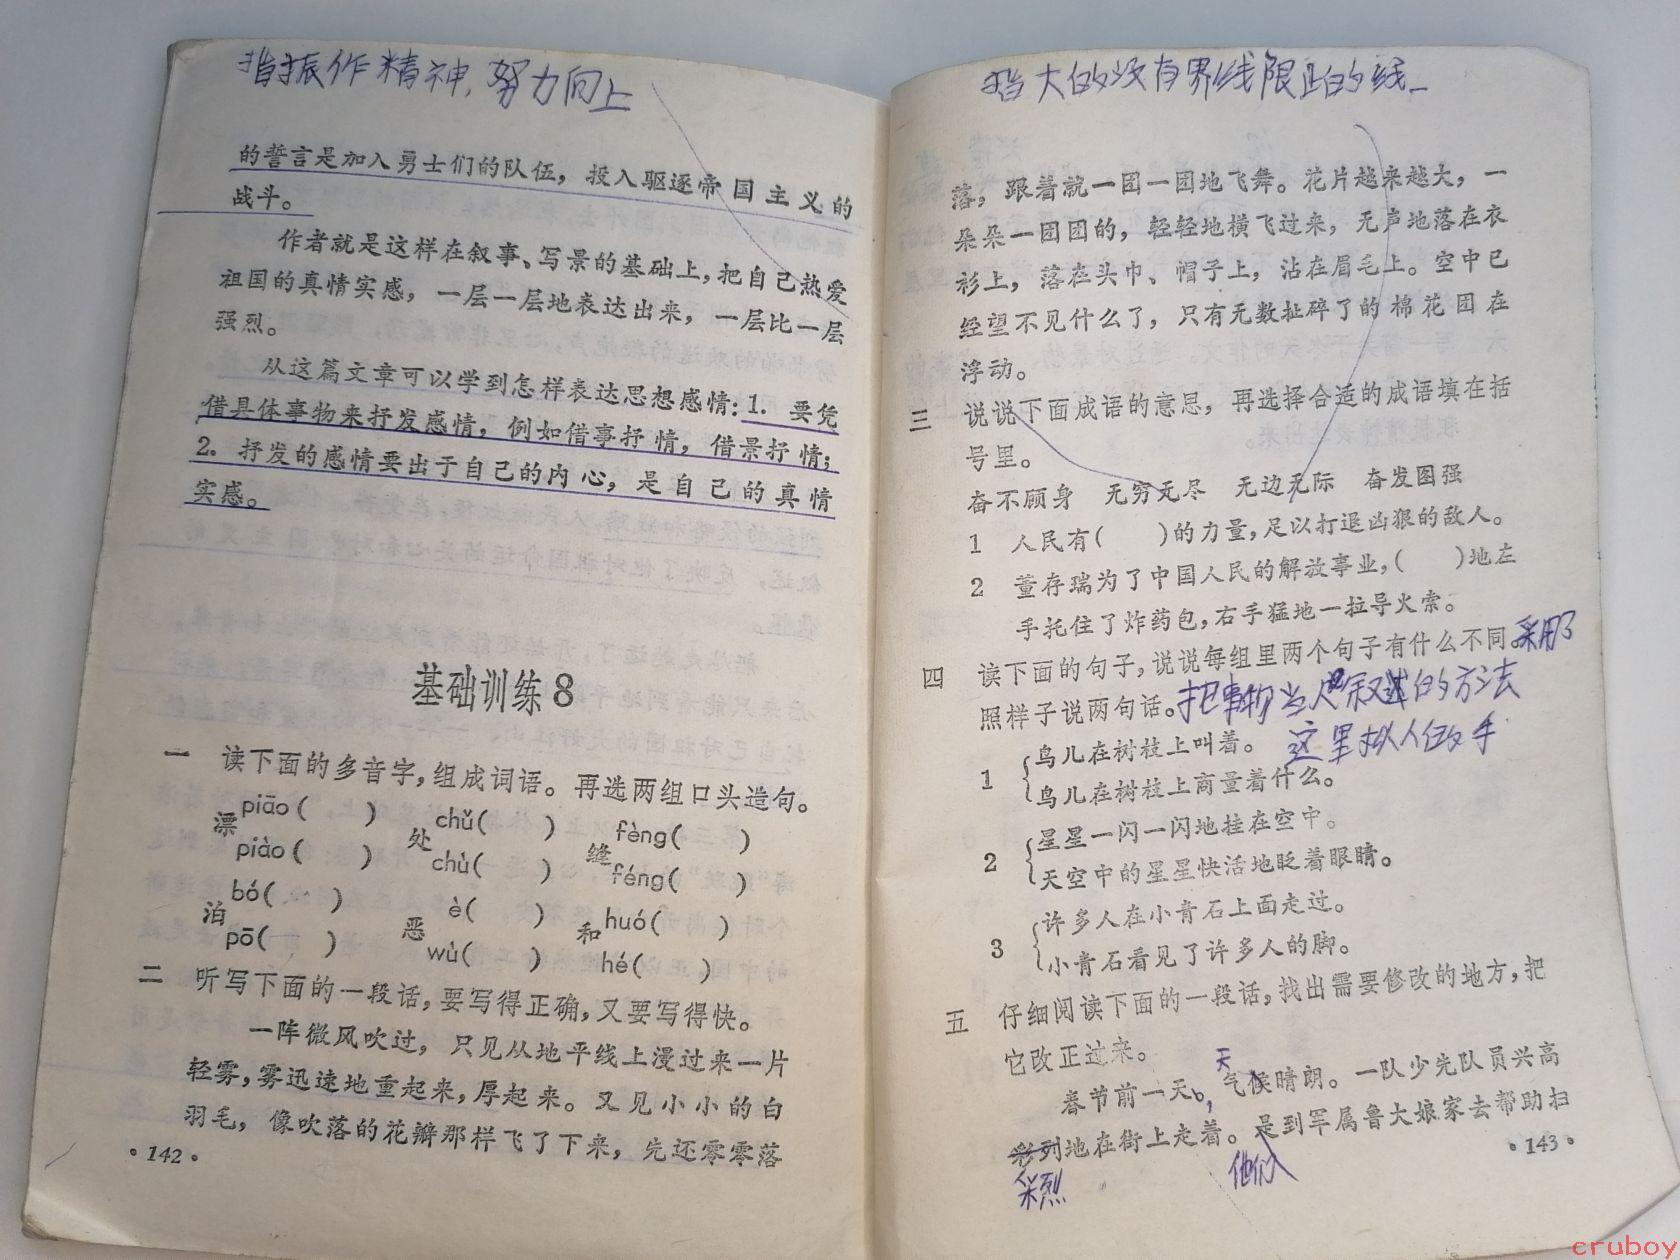 指振作精神,努力向上
的誓言是加入勇士们的队伍，投入驱逐帝国主义的
战斗。
作者就是这样在叙事、写景的基础上，把自己热爱
祖国的真情实感，一层一层地表达出来，一层比一层
强烈。
从这篇文章可以学到怎样表达思想感情：1. 要凭
借具体事物来抒发感情，例如借事抒情，借景抒情；
2. 抒发的感情要出于自己的内心，是自己的真情
实感。
基础训练8
一 读下面的多音字，组成词语。再选两组口头造句。
漂 piāo( ) piào( )
处 chǔ( ) chù( )
缝 fèng( ) féng( )
泊 bó( ) pō( )
恶 è( ) wù( )
和 huó( ) hé( )
二 听写下面的一段话，要写得正确，又要写得快。
一阵微风吹过，只见从地平线上漫过来一片
轻雾，雾迅速地重起来，厚起来。又见小小的白
羽毛，像吹落的花瓣那样飞了下来，先还零零落
·142·
指大的没有界线限止的线
落，跟着就一团一团地飞舞。花片越来越大，一
朵朵一团团的，轻轻地横飞过来，无声地落在衣
衫上，落在头巾、帽子上，沾在眉毛上。空中已
经望不见什么了，只有无数扯碎了的棉花团在
浮动。
三 说说下面成语的意思，再选择合适的成语填在括
号里。
奋不顾身 无穷无尽 无边无际 奋发图强
1 人民有( )的力量，足以打退凶狠的敌人。
2 董存瑞为了中国人民的解放事业，( )地左
手托住了炸药包，右手猛地一拉导火索。
四 读下面的句子，说说每组里两个句子有什么不同。采用了
照样子说两句话。把事物当人叙述的方法
这里拟人做手
1 鸟儿在树枝上叫着。
鸟儿在树枝上商量着什么。
2 星星一闪一闪地挂在空中。
天空中的星星快活地眨着眼睛。
3 许多人在小青石上面走过。
小青石看见了许多人的脚。
五 仔细阅读下面的一段话，找出需要修改的地方，把
它改正过来。
天
春节前一天，气候晴朗。一队少先队员兴高
彩列地在街上走着。是到军属鲁大娘家去帮助扫
采烈 他们
·143·
cruboy